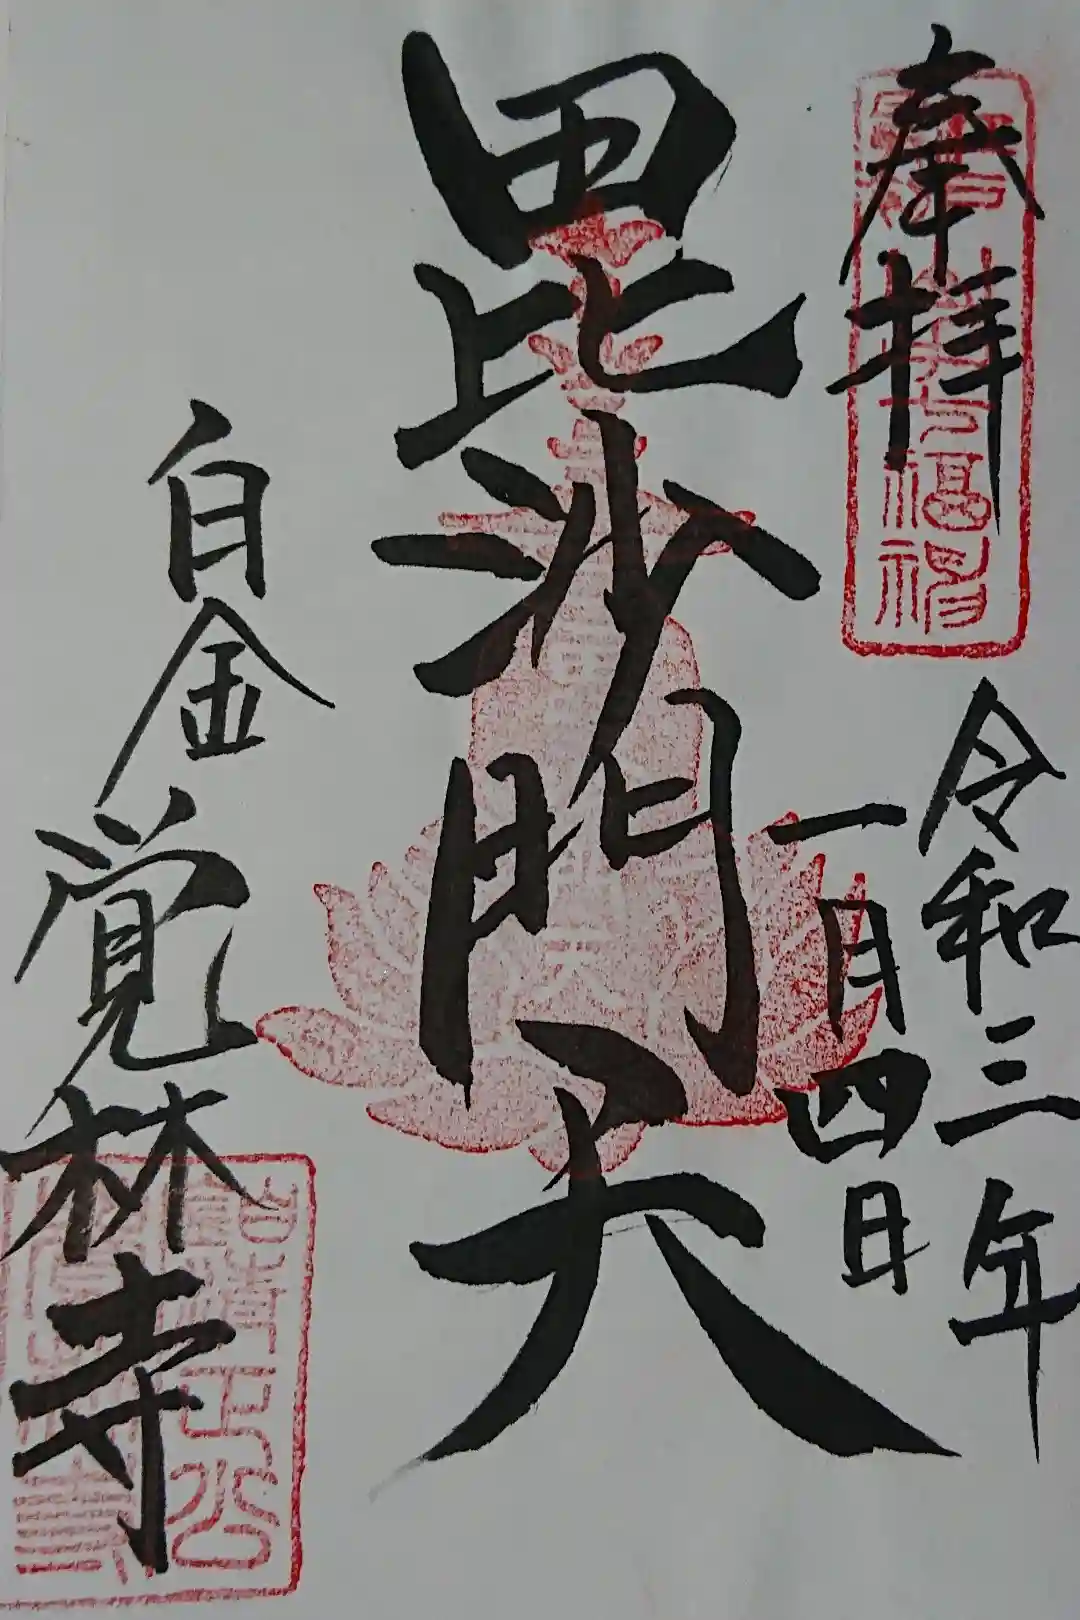 奉拝
令和三年
一月四日
毘沙門天
白金覚林寺